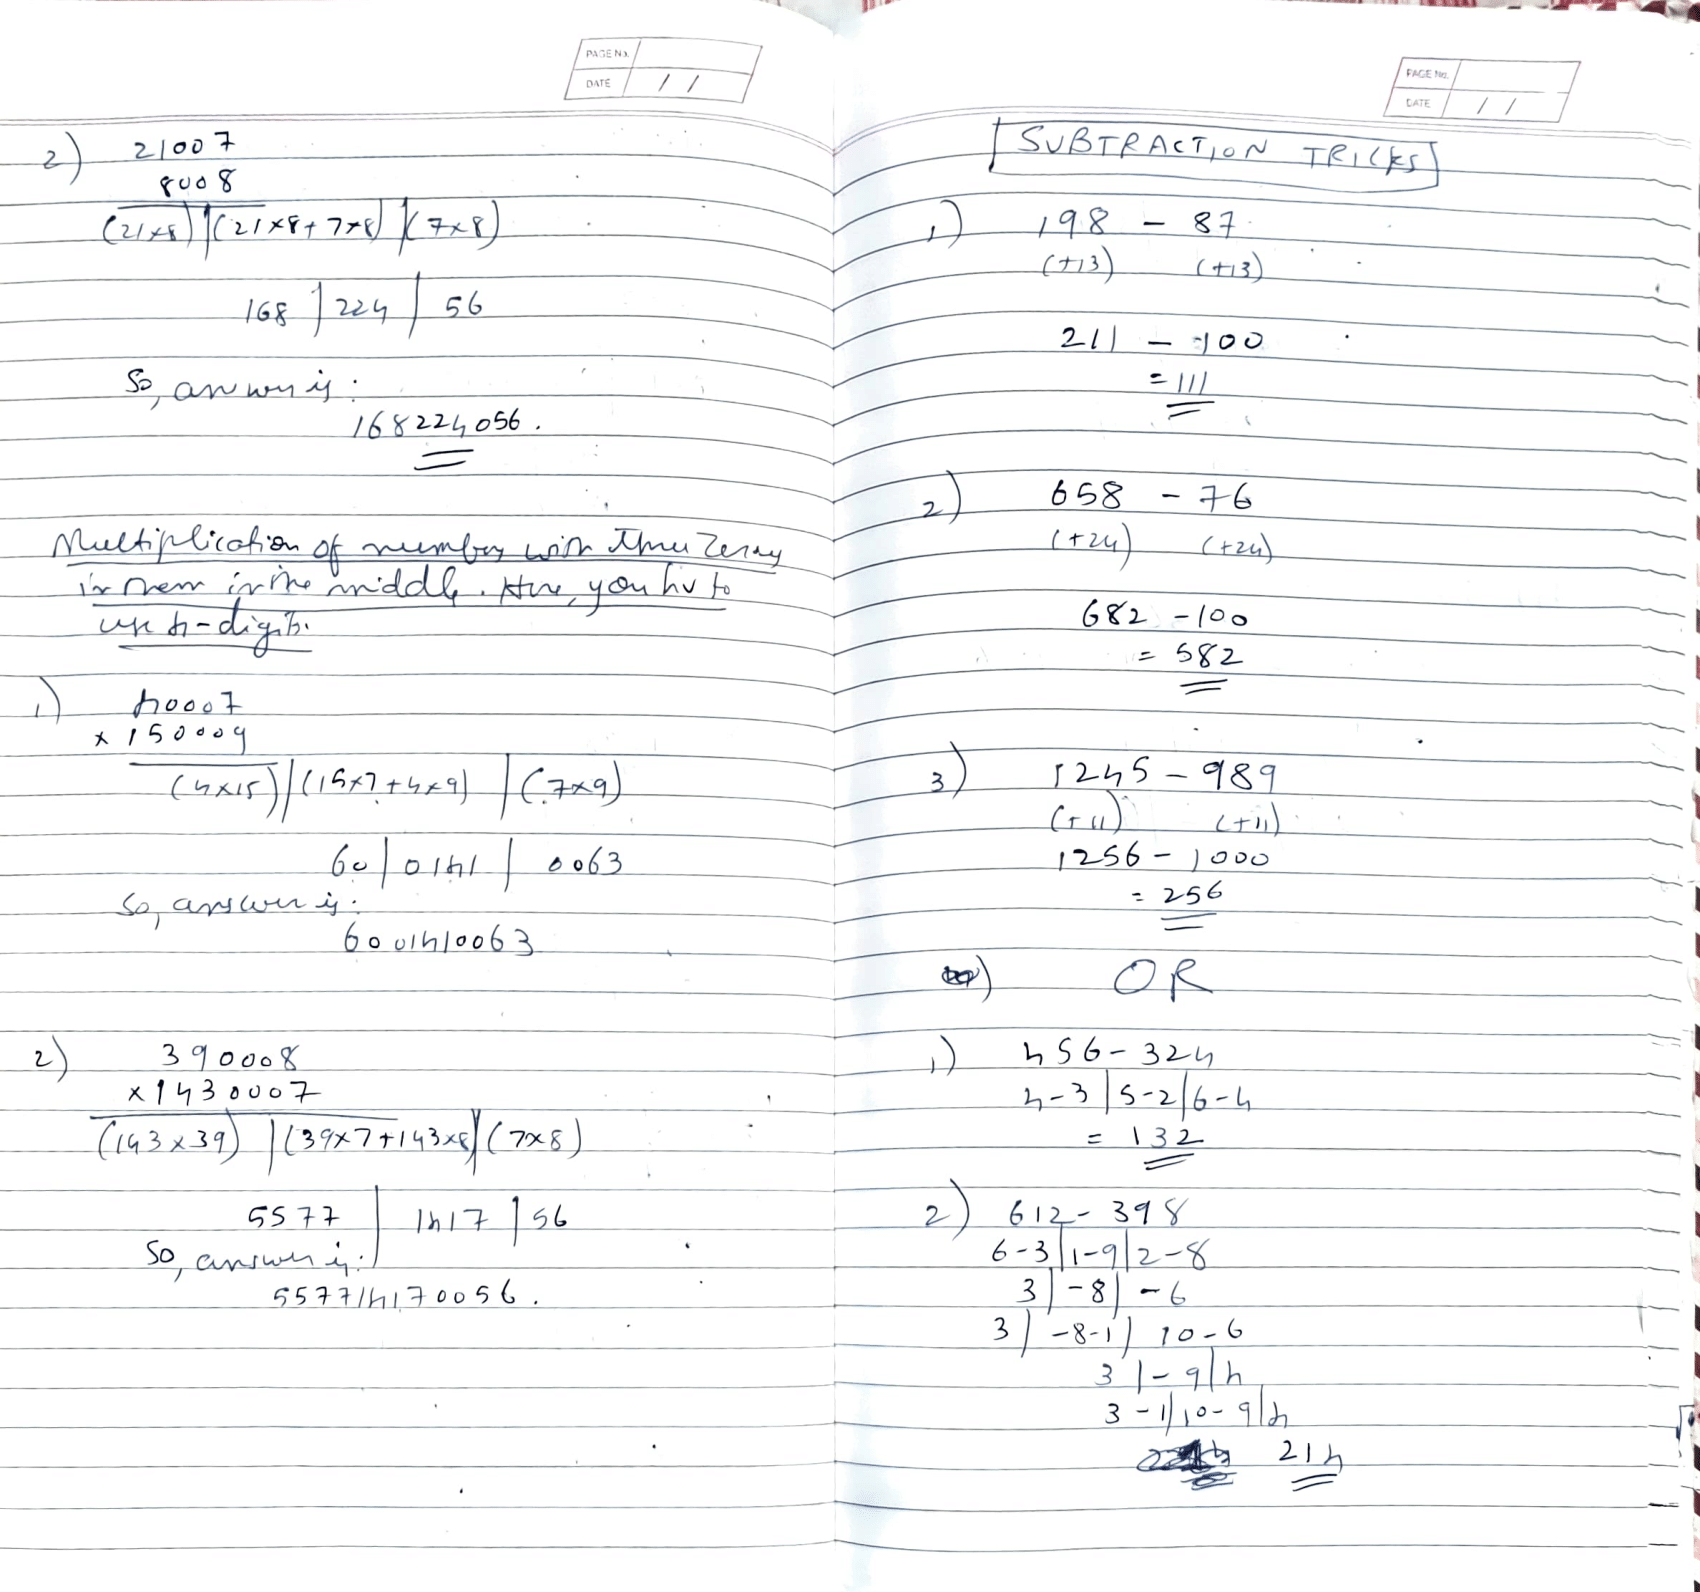 PAGE No.
DATE / /
2) 21007
8008
(21x8) | (21x8+7x8) | (7x8)
168 | 224 | 56
So, answer is :
168224056.
Multiplication of numbers with three zeros
in them in the middle. Here, you hv to
use 4-digits.
1) 40007
x 150009
(4x15) | (15x7+4x9) | (7x9)
60 | 0141 | 0063
So, answer is :
6001410063
2) 390008
x1430007
(143x39) | (39x7+143x8) | (7x8)
5577 | 1417 | 56
So, answer is :
557714170056.
PAGE No.
DATE / /
SUBTRACTION TRICKS
1) 198 - 87
(+13) (+13)
211 - 100
= 111
2) 658 - 76
(+24) (+24)
682 - 100
= 582
3) 1245 - 989
(+11) (+11)
1256 - 1000
= 256
OR
1) 456 - 324
4-3 | 5-2 | 6-4
= 132
2) 612 - 398
6-3 | 1-9 | 2-8
3 | -8 | -6
3 | -8-1 | 10-6
3 | -9 | 4
3-1 | 10-9 | 4
214